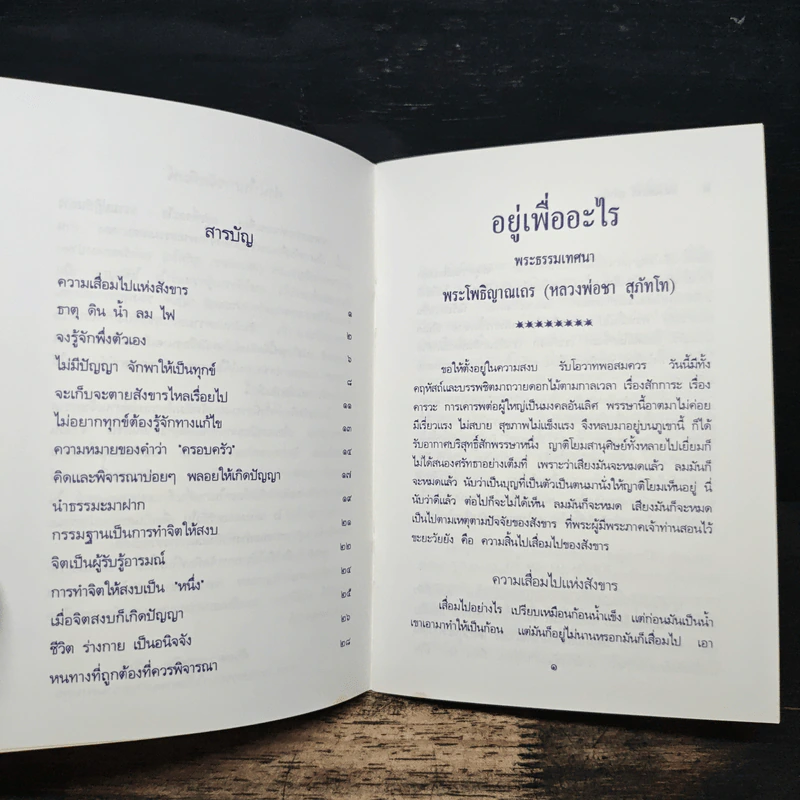 สารบัญ
ความเสื่อมไปแห่งสังขาร ๑
ธาตุ ดิน น้ำ ลม ไฟ ๒
จงรู้จักพึ่งตัวเอง ๖
ไม่มีปัญญา จักพาให้เป็นทุกข์ ๘
จะเก็บจะตายสังขารไหลเรื่อยไป ๑๑
ไม่อยากทุกข์ต้องรู้จักทางแก้ไข ๑๓
ความหมายของคำว่า "ครอบครัว" ๑๔
คิดและพิจารณาบ่อยๆ พลอยให้เกิดปัญญา ๑๗
นำธรรมะมาฝาก ๑๙
กรรมฐานเป็นการทำจิตให้สงบ ๒๑
จิตเป็นผู้รับรู้อารมณ์ ๒๒
การทำจิตให้สงบเป็น "หนึ่ง" ๒๔
เมื่อจิตสงบก็เกิดปัญญา ๒๕
ชีวิต ร่างกาย เป็นอนิจจัง ๒๖
หนทางที่ถูกต้องที่ควรพิจารณา ๒๘
อยู่เพื่ออะไร
พระธรรมเทศนา
พระโพธิญาณเถร (หลวงพ่อชา สุภัทโท)
********
ขอให้ตั้งอยู่ในความสงบ รับโอวาทพอสมควร วันนี้มีทั้ง
คฤหัสถ์และบรรพชิตมาถวายดอกไม้ตามกาลเวลา เรื่องสักการะ เรื่อง
คารวะ การเคารพต่อผู้ใหญ่เป็นมงคลอันเลิศ พรรษานี้อาตมาไม่ค่อย
มีเรี่ยวแรง ไม่สบาย สุขภาพไม่แข็งแรง จึงหลบมาอยู่บนภูเขานี้ ก็ได้
รับอากาศบริสุทธิ์สักพรรษาหนึ่ง ญาติโยมสานุศิษย์ทั้งหลายไปเยี่ยมก็
ไม่ได้สนองศรัทธาอย่างเต็มที่ เพราะว่าเสียงมันจะหมดแล้ว ลมมันก็
จะหมดแล้ว นับว่าเป็นบุญที่เป็นตัวเป็นตนมานั่งให้ญาติโยมเห็นอยู่ นี่
นับว่าดีแล้ว ต่อไปก็จะไม่ได้เห็น ลมมันก็จะหมด เสียงมันก็จะหมด
เป็นไปตามเหตุตามปัจจัยของสังขาร ที่พระผู้มีพระภาคเจ้าท่านสอนไว้
ขะยะวัยยัง คือ ความสิ้นไปเสื่อมไปของสังขาร
ความเสื่อมไปแห่งสังขาร
เสื่อมไปอย่างไร เปรียบเหมือนก้อนน้ำแข็ง แต่ก่อนมันเป็นน้ำ
เขาเอามาทำให้เป็นก้อน แต่มันก็อยู่ไม่นานหรอกมันก็เสื่อมไป เอา
๑